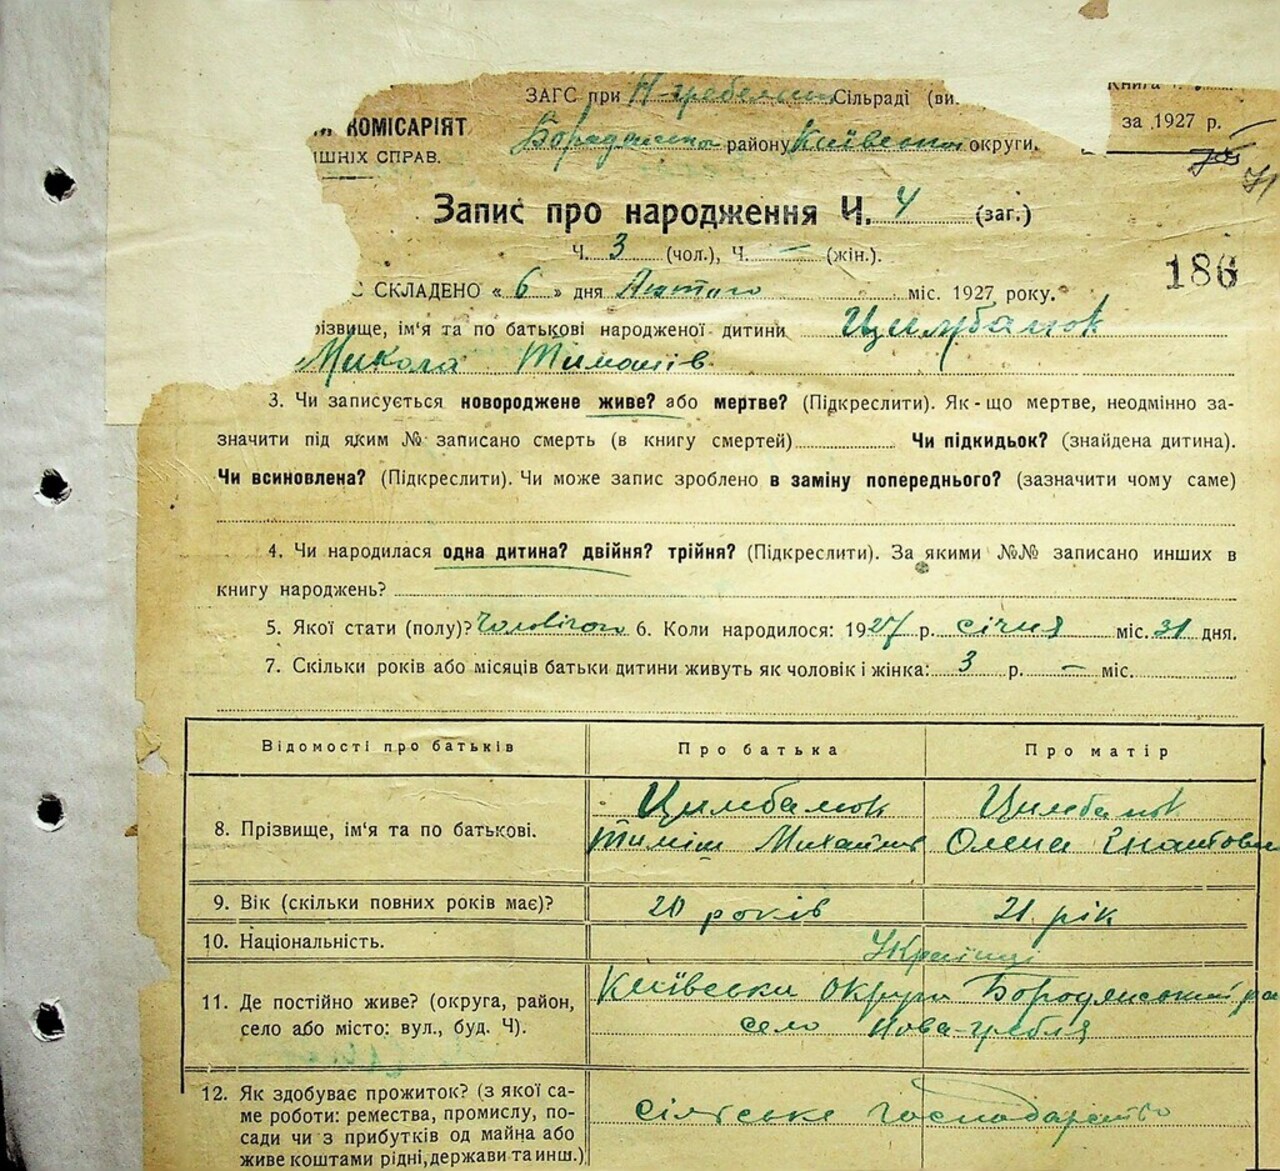 ЗАГС при Н-гребельск Сільраді (ви.
Книга
КОМІСАРІЯТ
Бородянсько району Київсько округи,
за 1927 р.
ШНІХ СПРАВ.
71
Запис про народження Ч. 4 (заг.)
Ч. 3 (чол.), Ч. — (жін.).
186
С СКЛАДЕНО « 6 » дня Лютого міс. 1927 року.
різвище, ім'я та по батькові народженої дитини Цимбалюк
Микола Тимошів
3. Чи записується новороджене живе? або мертве? (Підкреслити). Як-що мертве, неодмінно за-
значити під яким № записано смерть (в книгу смертей) Чи підкидьок? (знайдена дитина).
Чи всиновлена? (Підкреслити). Чи може запис зроблено в заміну попереднього? (зазначити чому саме)
4. Чи народилася одна дитина? двійня? трійня? (Підкреслити). За якими №№ записано инших в
книгу народжень?
5. Якої стати (полу)? Чоловічої 6. Коли народилося: 1927 р. січня міс. 31 дня.
7. Скільки років або місяців батьки дитини живуть як чоловік і жінка: 3 р. — міс.
Відомості про батьків Про батька Про матір
Цимбалюк Цимбалюк
8. Прізвище, ім'я та по батькові. Тиміш Михайлів Олена Ігнатовна
9. Вік (скільки повних років має)? 20 років 21 рік
10. Національність. Українці
11. Де постійно живе? (округа, район, Київська округи Бородянський ра
село або місто: вул., буд. Ч). село Нова-гребля
12. Як здобуває прожиток? (з якої са-
ме роботи: ремества, промислу, по- сільське господарство
сади чи з прибутків од майна або
живе коштами рідні, держави та инш.)